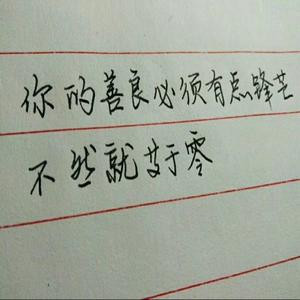 你的善良必须有点锋芒
不然就等于零